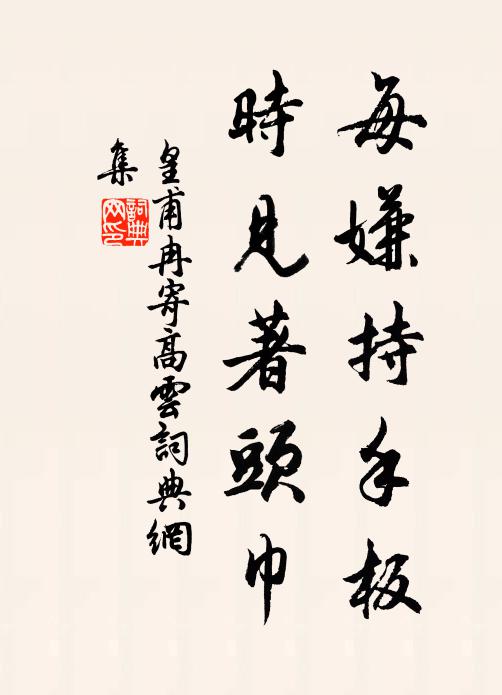 每嫌持手板
時見著頭巾
皇甫冉寄高雲詞典網
集
詞典
网印